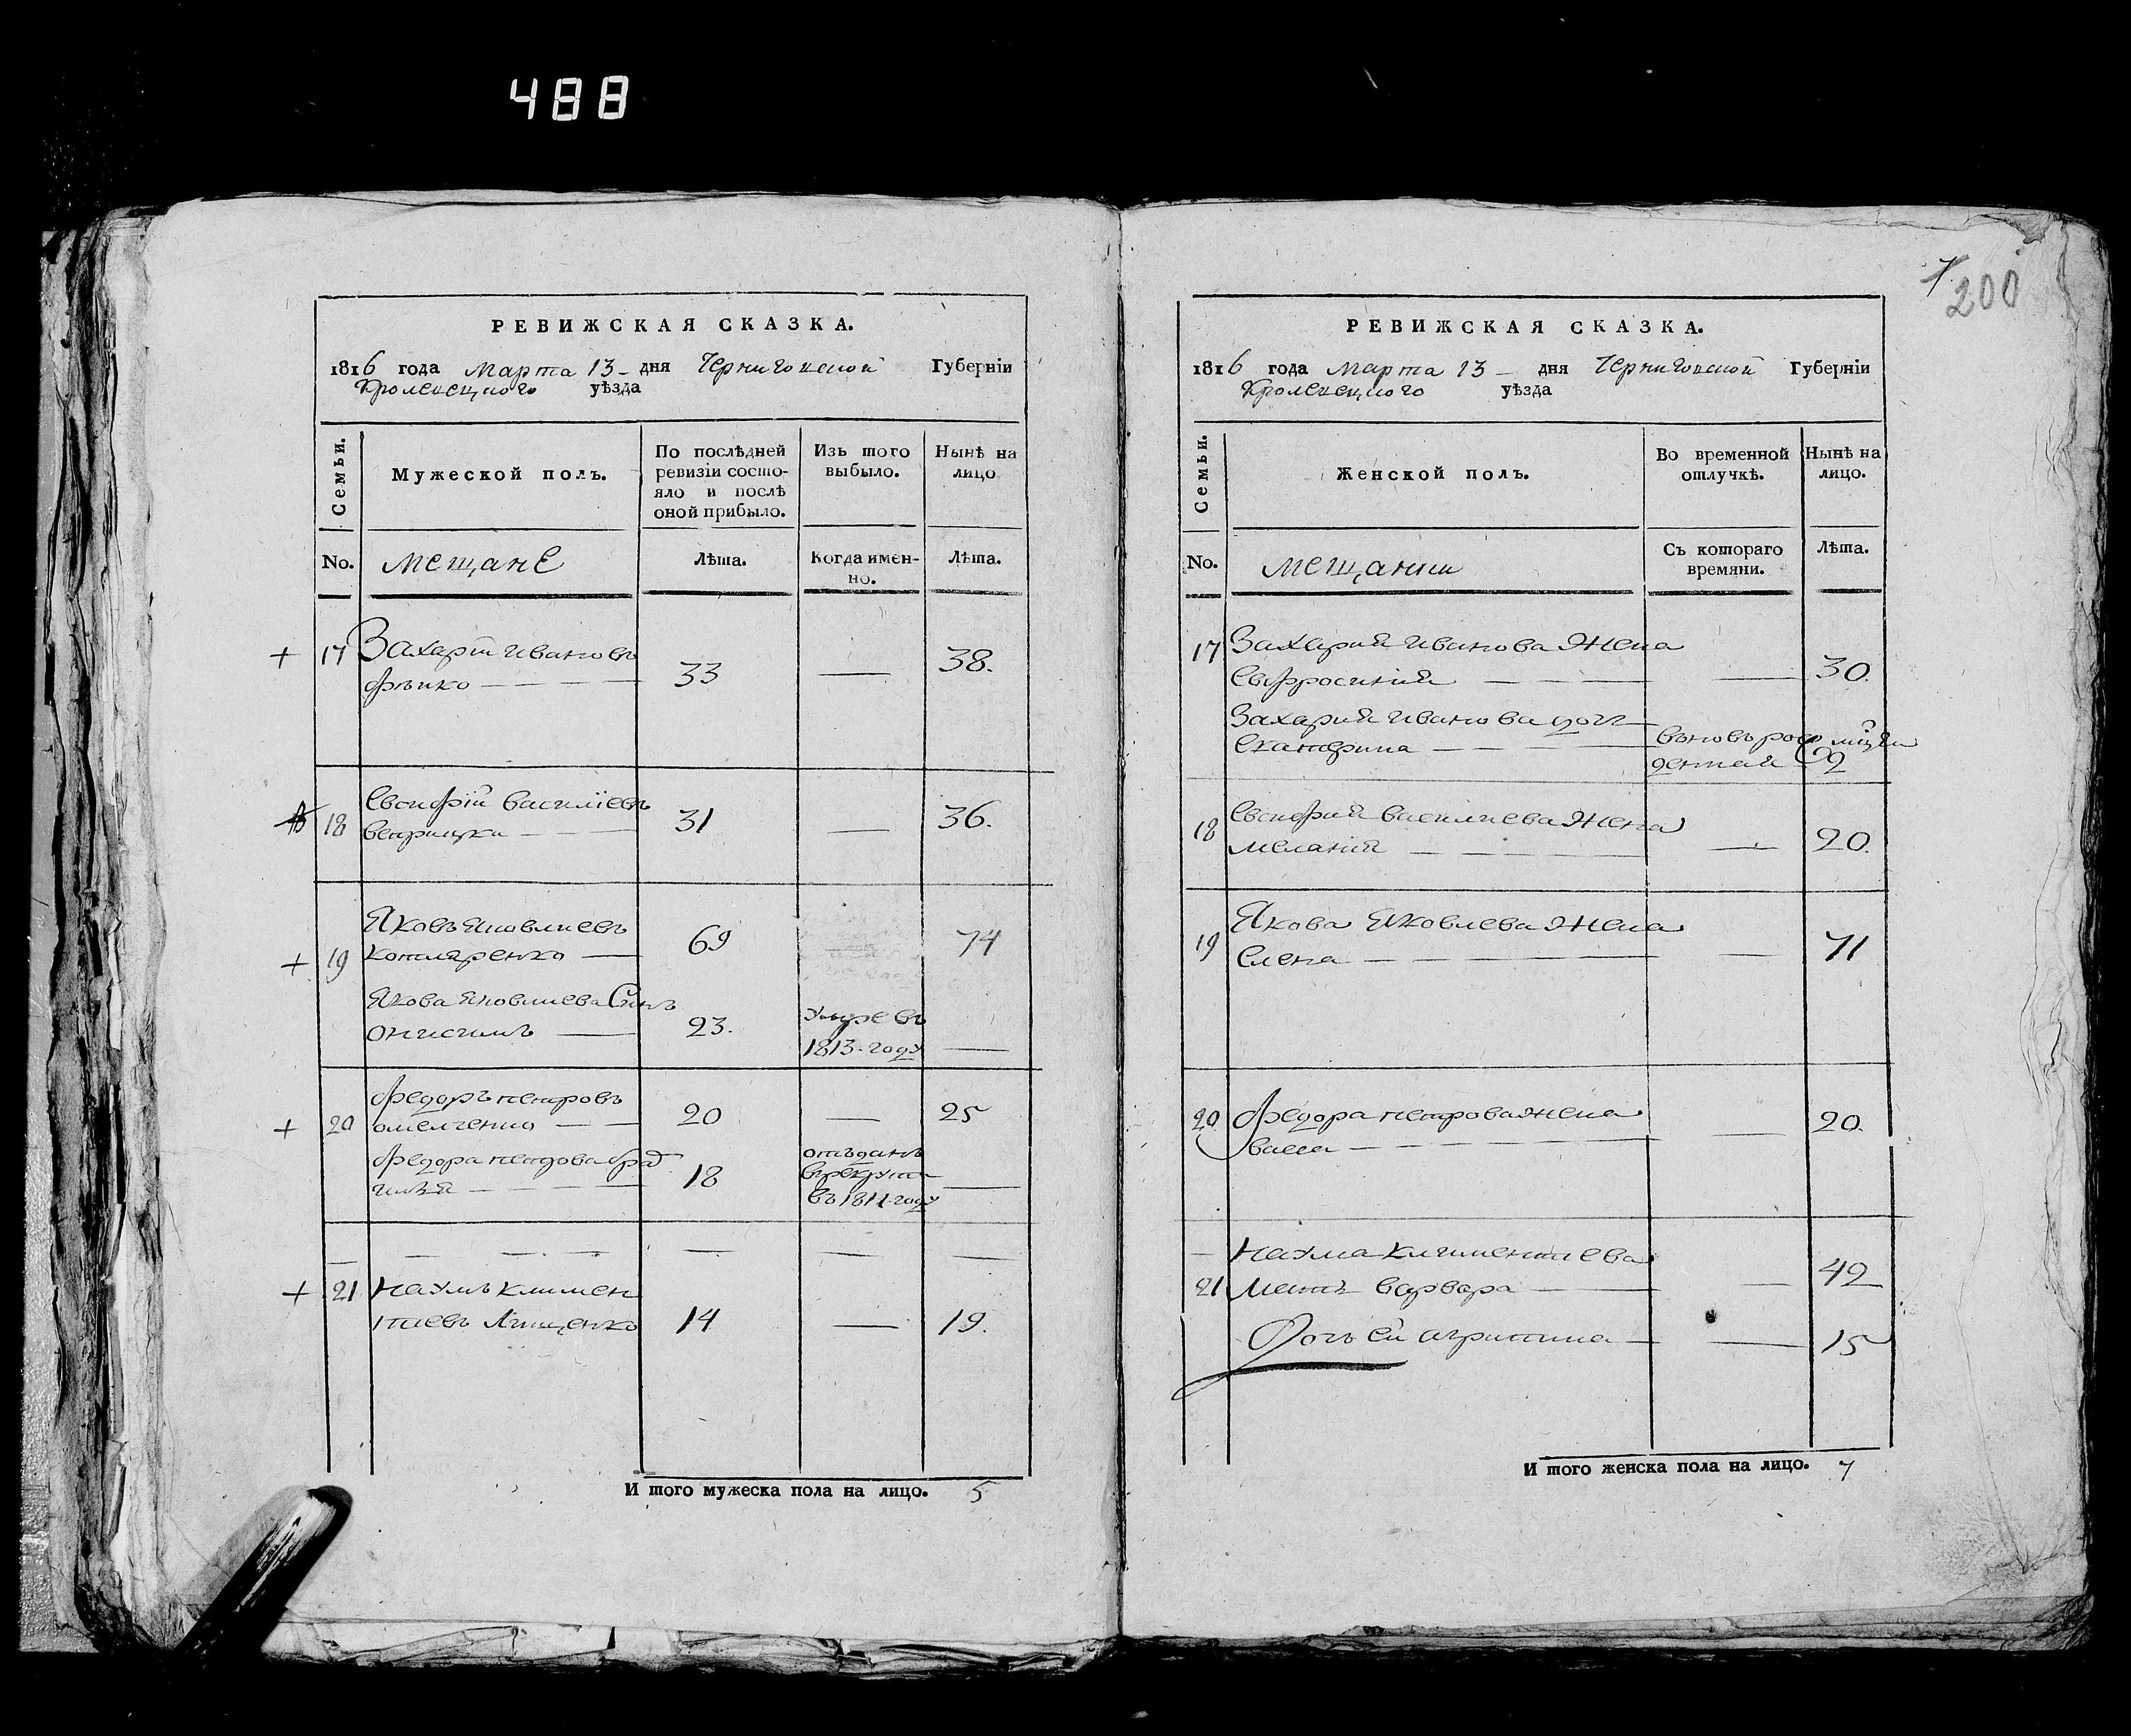 488
РЕВИЖСКАЯ СКАЗКА.
1816 года марта 13 – дня Черниговской Губерніи
Кролевецкого уѣзда
Семьи.
Мужеской полъ.
По послѣдней
ревизіи состо-
яло и послѣ
оной прибыло.
Изъ того
выбыло.
Нынѣ на
лицо
No.
мещане
Лѣта.
Когда имен-
но.
Лѣта.
+ 17 Захарій ивановъ
33 — 38.
18 Евстафій василіевъ
31 — 36.
+ 19 Яковъ Яковлиевъ
котляренко — 69 74
Якова Яковлиева Синъ
онисимъ — 23. умре въ
1813-году —
+ 20 Федоръ петровъ
омелченко — 20 — 25
Федора петрова брат
18 отъданъ
врекрути
въ 1811-году —
+ 21 наумъ климен
тиевъ Лищенко 14 — 19.
И того мужеска пола на лицо. 5
7
200
РЕВИЖСКАЯ СКАЗКА.
1816 года марта 13 – дня Черниговской Губерніи
Кролевецкого уѣзда
Семьи.
Женской полъ.
Во временной
отлучкѣ.
Нынѣ на
лицо.
No.
мещанки
Съ котораго
времяни.
Лѣта.
17 Захария иванова жена
Евфросиния — 30.
Захария иванова доч
екатерина — вѣновь рож
денная 2
18 Евстафия василиева жена
мелания — 20.
19 Якова Яковлева жена
Елена — 71
20 Федора петрова жена
васса — 20.
21 наума климентиева
мать варвара — 42
Дочь ей агрипина — 15
И того женска пола на лицо. 7